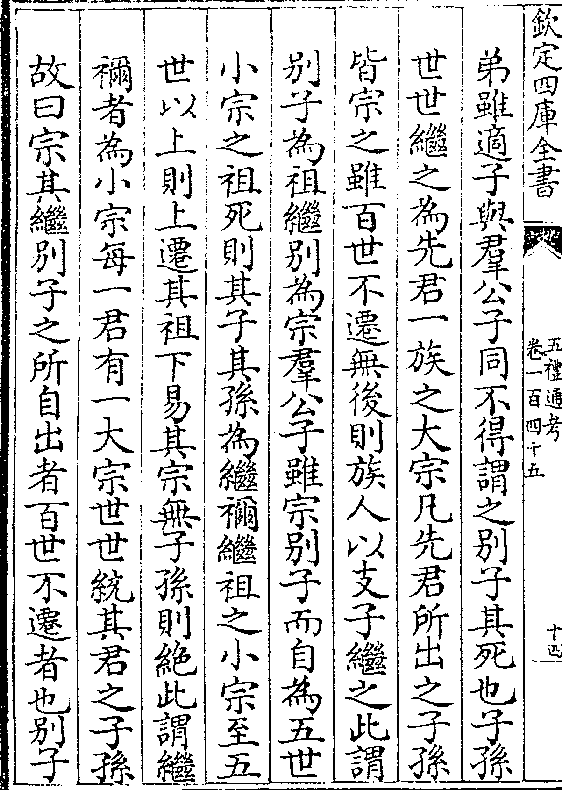 欽定四庫全書
五禮通考
卷一百四十五
十四
弟雖適子與羣公子同不得謂之别子其死也子孫
世世繼之為先君一族之大宗凡先君所出之子孫
皆宗之雖百世不遷無後則族人以支子繼之此謂
别子為祖繼别為宗羣公子雖宗别子而自為五世
小宗之祖死則其子其孫為繼禰繼祖之小宗至五
世以上則上遷其祖下易其宗無子孫則絶此謂繼
禰者為小宗每一君有一大宗世世統其君之子孫
故曰宗其繼别子之所自出者百世不遷者也别子